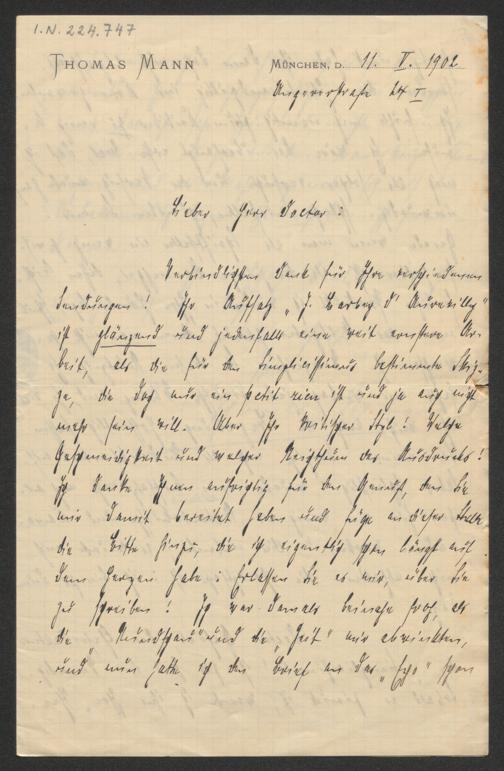 I.N. 224.747
THOMAS MANN
MÜNCHEN, D. 11. V. 1902
Ungererstraße 24 I
Lieber Herr Doctor:
Verbindlichsten Dank für Ihre verschiedenen
Sendungen! Ihr Aufsatz „J. Barbey d'Aurevilly"
ist glänzend und jedenfalls eine weit ernstere Ar-
beit, als die für den Simplicissimus bestimmte Skiz-
ze, die doch nur ein petit rien ist und ja auch nicht
mehr sein will. Aber Ihr kritischer Styl! Welche
Geschmeidigkeit und welcher Reichthum des Ausdrucks!
Ich danke Ihnen aufrichtig für den Genuß, den Sie
mir damit bereitet haben und füge an dieser Stelle
die Bitte hinzu, die ich eigentlich schon längst auf
dem Herzen habe: Erlassen Sie es mir, über Sie
zu schreiben! Ich war damals beinahe froh, als
die „Rundschau" und die „Zeit" mir abwinkten,
und nun hatte ich den Brief an das „Echo" schon